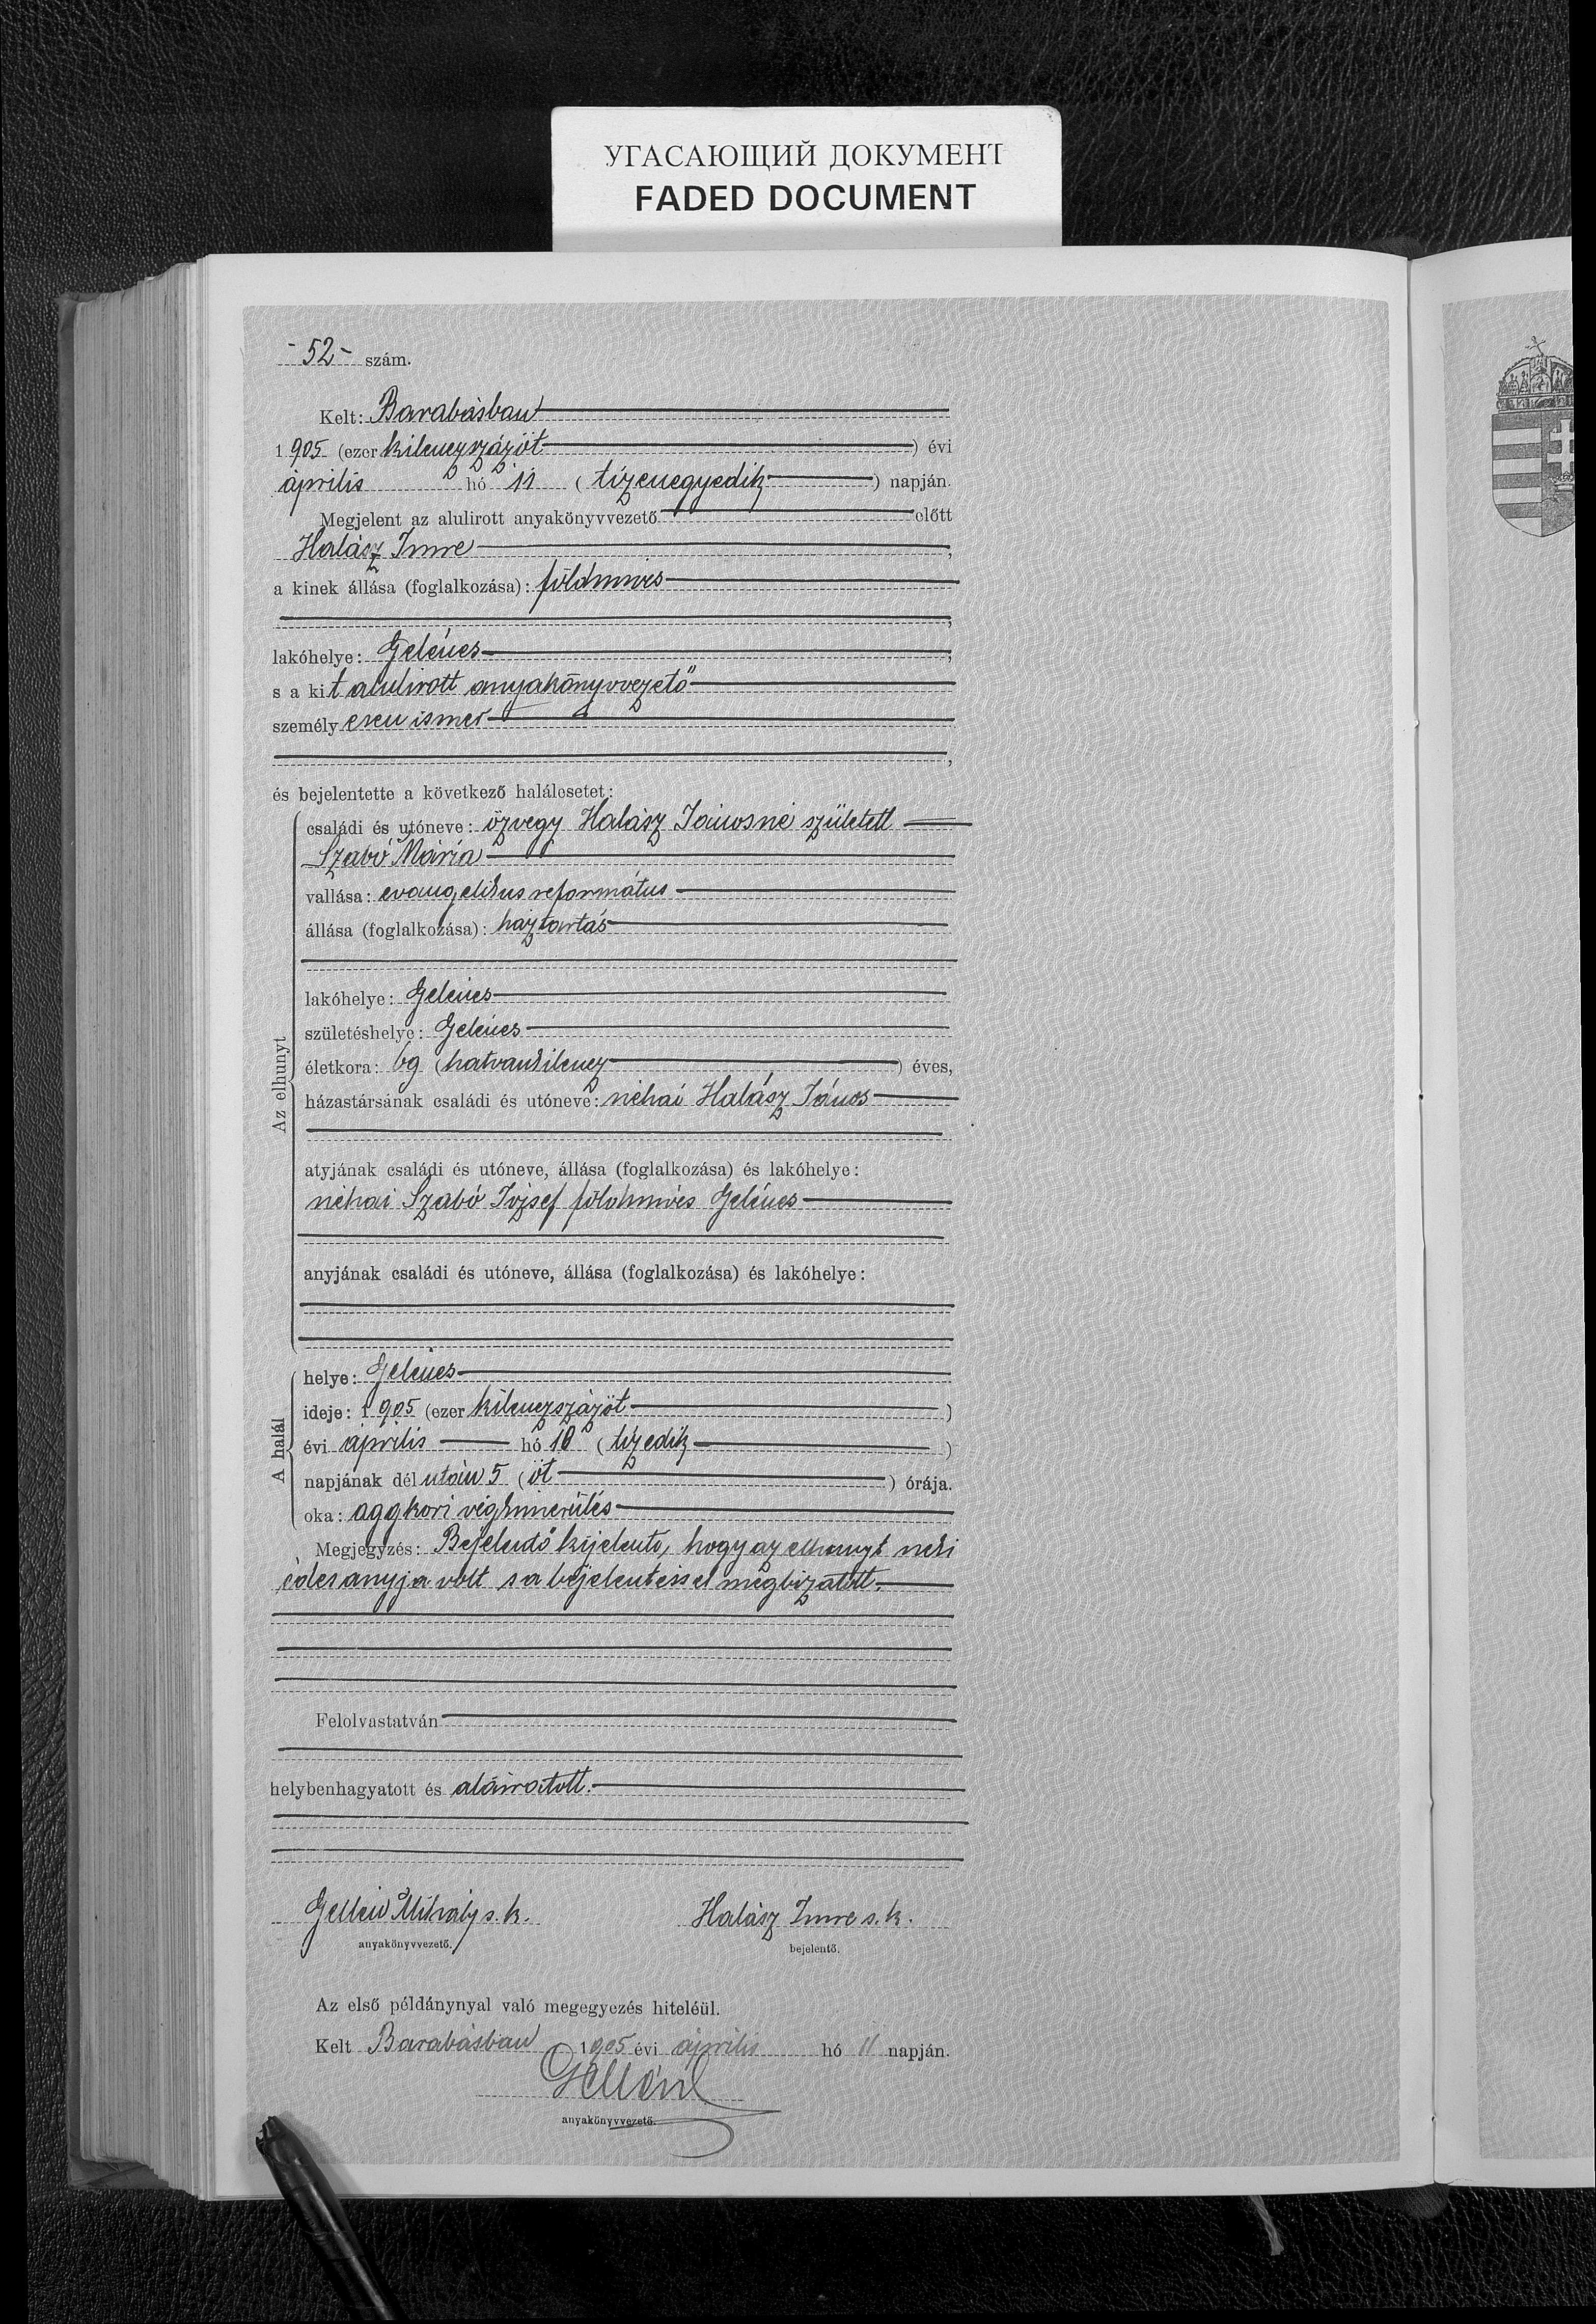 УГАСАЮЩИЙ ДОКУМЕНТ
FADED DOCUMENT
- 52 - szám.
Kelt: Barabásban
1905 (ezer kilenczszázöt) évi
április hó 11 (tizenegyedik) napján.
Megjelent az alulirott anyakönyvvezető előtt
Halász Imre,
a kinek állása (foglalkozása): földmives
,
lakóhelye: Gelénes,
s a kit alulirott anyakönyvvezető
személyesen ismer
,
és bejelentette a következő halálesetet:
Az elhunyt
családi és utóneve: özvegy Halász Jánosné született
Szabó Mária
vallása: evangelikus református
állása (foglalkozása): haztartás
lakóhelye: Gelénes
születéshelye: Gelénes
életkora: 69 (hatvankilencz) éves,
házastársának családi és utóneve: néhai Halász János
atyjának családi és utóneve, állása (foglalkozása) és lakóhelye:
néhai Szabó József földmives Gelénes
anyjának családi és utóneve, állása (foglalkozása) és lakóhelye:
A halál
helye: Gelénes
ideje: 1905 (ezer kilenczszázöt)
évi április hó 10 (tizedik)
napjának dél után 5 (öt) órája.
oka: aggkori végkimerülés
Megjegyzés: Bejelentő kijelenté, hogy az elhunyt neki
édesanyja volt s a bejelentéssel megbizatott.
Felolvastatván
helybenhagyatott és aláiratott.
Gellén Mihály s. k. Halász Imre s. k.
anyakönyvvezető. bejelentő.
Az első példánynyal való megegyezés hiteléül.
Kelt Barabásban 1905 évi április hó 11 napján.
Gellén
anyakönyvvezető.